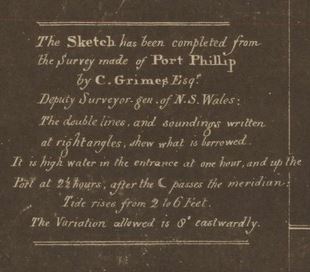 The Sketch has been completed from
the Survey made of Port Phillip
by C. Grimes Esqr.
Deputy Surveyor-gen. of N.S. Wales:
The double lines, and soundings written
at right angles, show what is borrowed.
It is high water in the entrance at one hour, and up the
Port at 2½ hours, after the ☾ passes the meridian:
Tide rises from 2 to 6 feet.
The Variation allowed is 8° eastwardly.